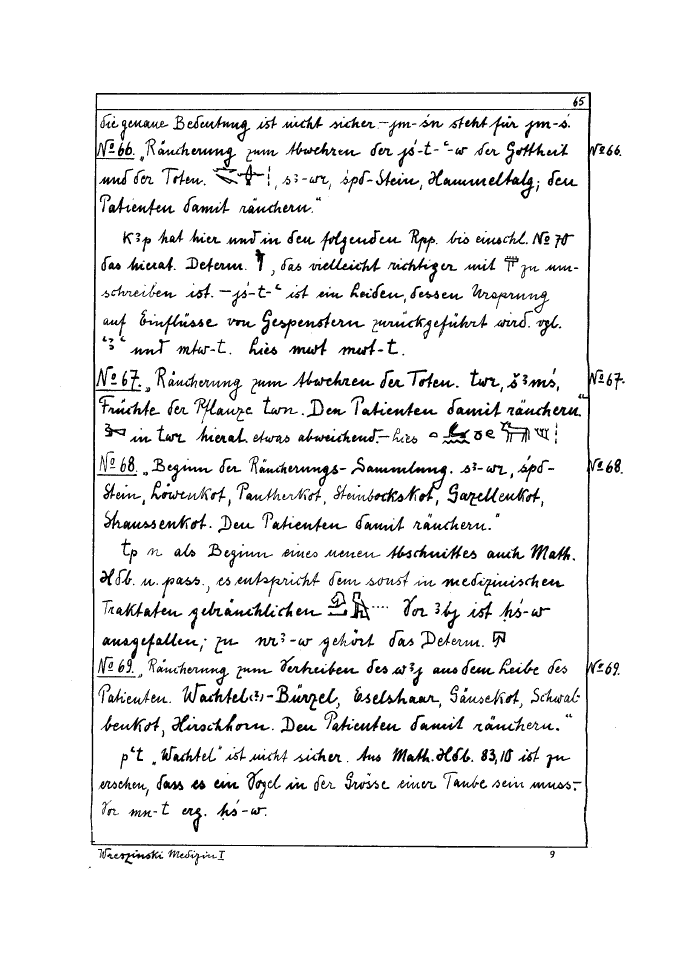 65
die genaue Bedeutung ist nicht sicher. – jm-śn steht für jm-ś.
No 66. „Räucherung zum Abwehren der jś-t-ʿ-w der Gottheit No 66.
und der Toten. , sꜣ-wr, śpd-Stein, Hammeltalg; den
Patienten damit räuchern.“
Kꜣp hat hier und in den folgenden Rpp. bis einschl. No 70
das hierat. Determ. , das vielleicht richtiger mit zu um-
schreiben ist. – jś-t-ʿ ist ein Leiden, dessen Ursprung
auf Einflüsse von Gespenstern zurückgeführt wird. vgl.
ʿꜣʿ und mtw-t. Lies mwt mwt-t.
No 67. „Räucherung zum Abwehren der Toten. twr, šꜣmś, No 67.
Früchte der Pflanze twn. Den Patienten damit räuchern.“
in twr hierat. etwas abweichend – lies
No 68. „Beginn der Räucherungs-Sammlung. sꜣ-wr, śpd- No 68.
Stein, Löwenkot, Pantherkot, Steinbockskot, Gazellenkot,
Straussenkot. Den Patienten damit räuchern.“
tp n als Beginn eines neuen Abschnittes auch Math.
Hdb. u. pass., es entspricht dem sonst in medizinischen
Traktaten gebräuchlichen .... Vor ꜣbj ist ḥś-w
ausgefallen; zu nrꜣ-w gehört das Determ.
No 69. „Räucherung zum Vertreiben des wꜣj aus dem Leibe des No 69.
Patienten. Wachtel(?)-Bürzel, Eselshaar, Gänsekot, Schwal-
benkot, Hirschhorn. Den Patienten damit räuchern.“
pʿt „Wachtel“ ist nicht sicher. Aus Math. Hdb. 83,10 ist zu
ersehen, dass es ein Vogel in der Grösse einer Taube sein muss. –
Vor mn-t erg. ḥś-w.
Wreszinski Medizin I 9